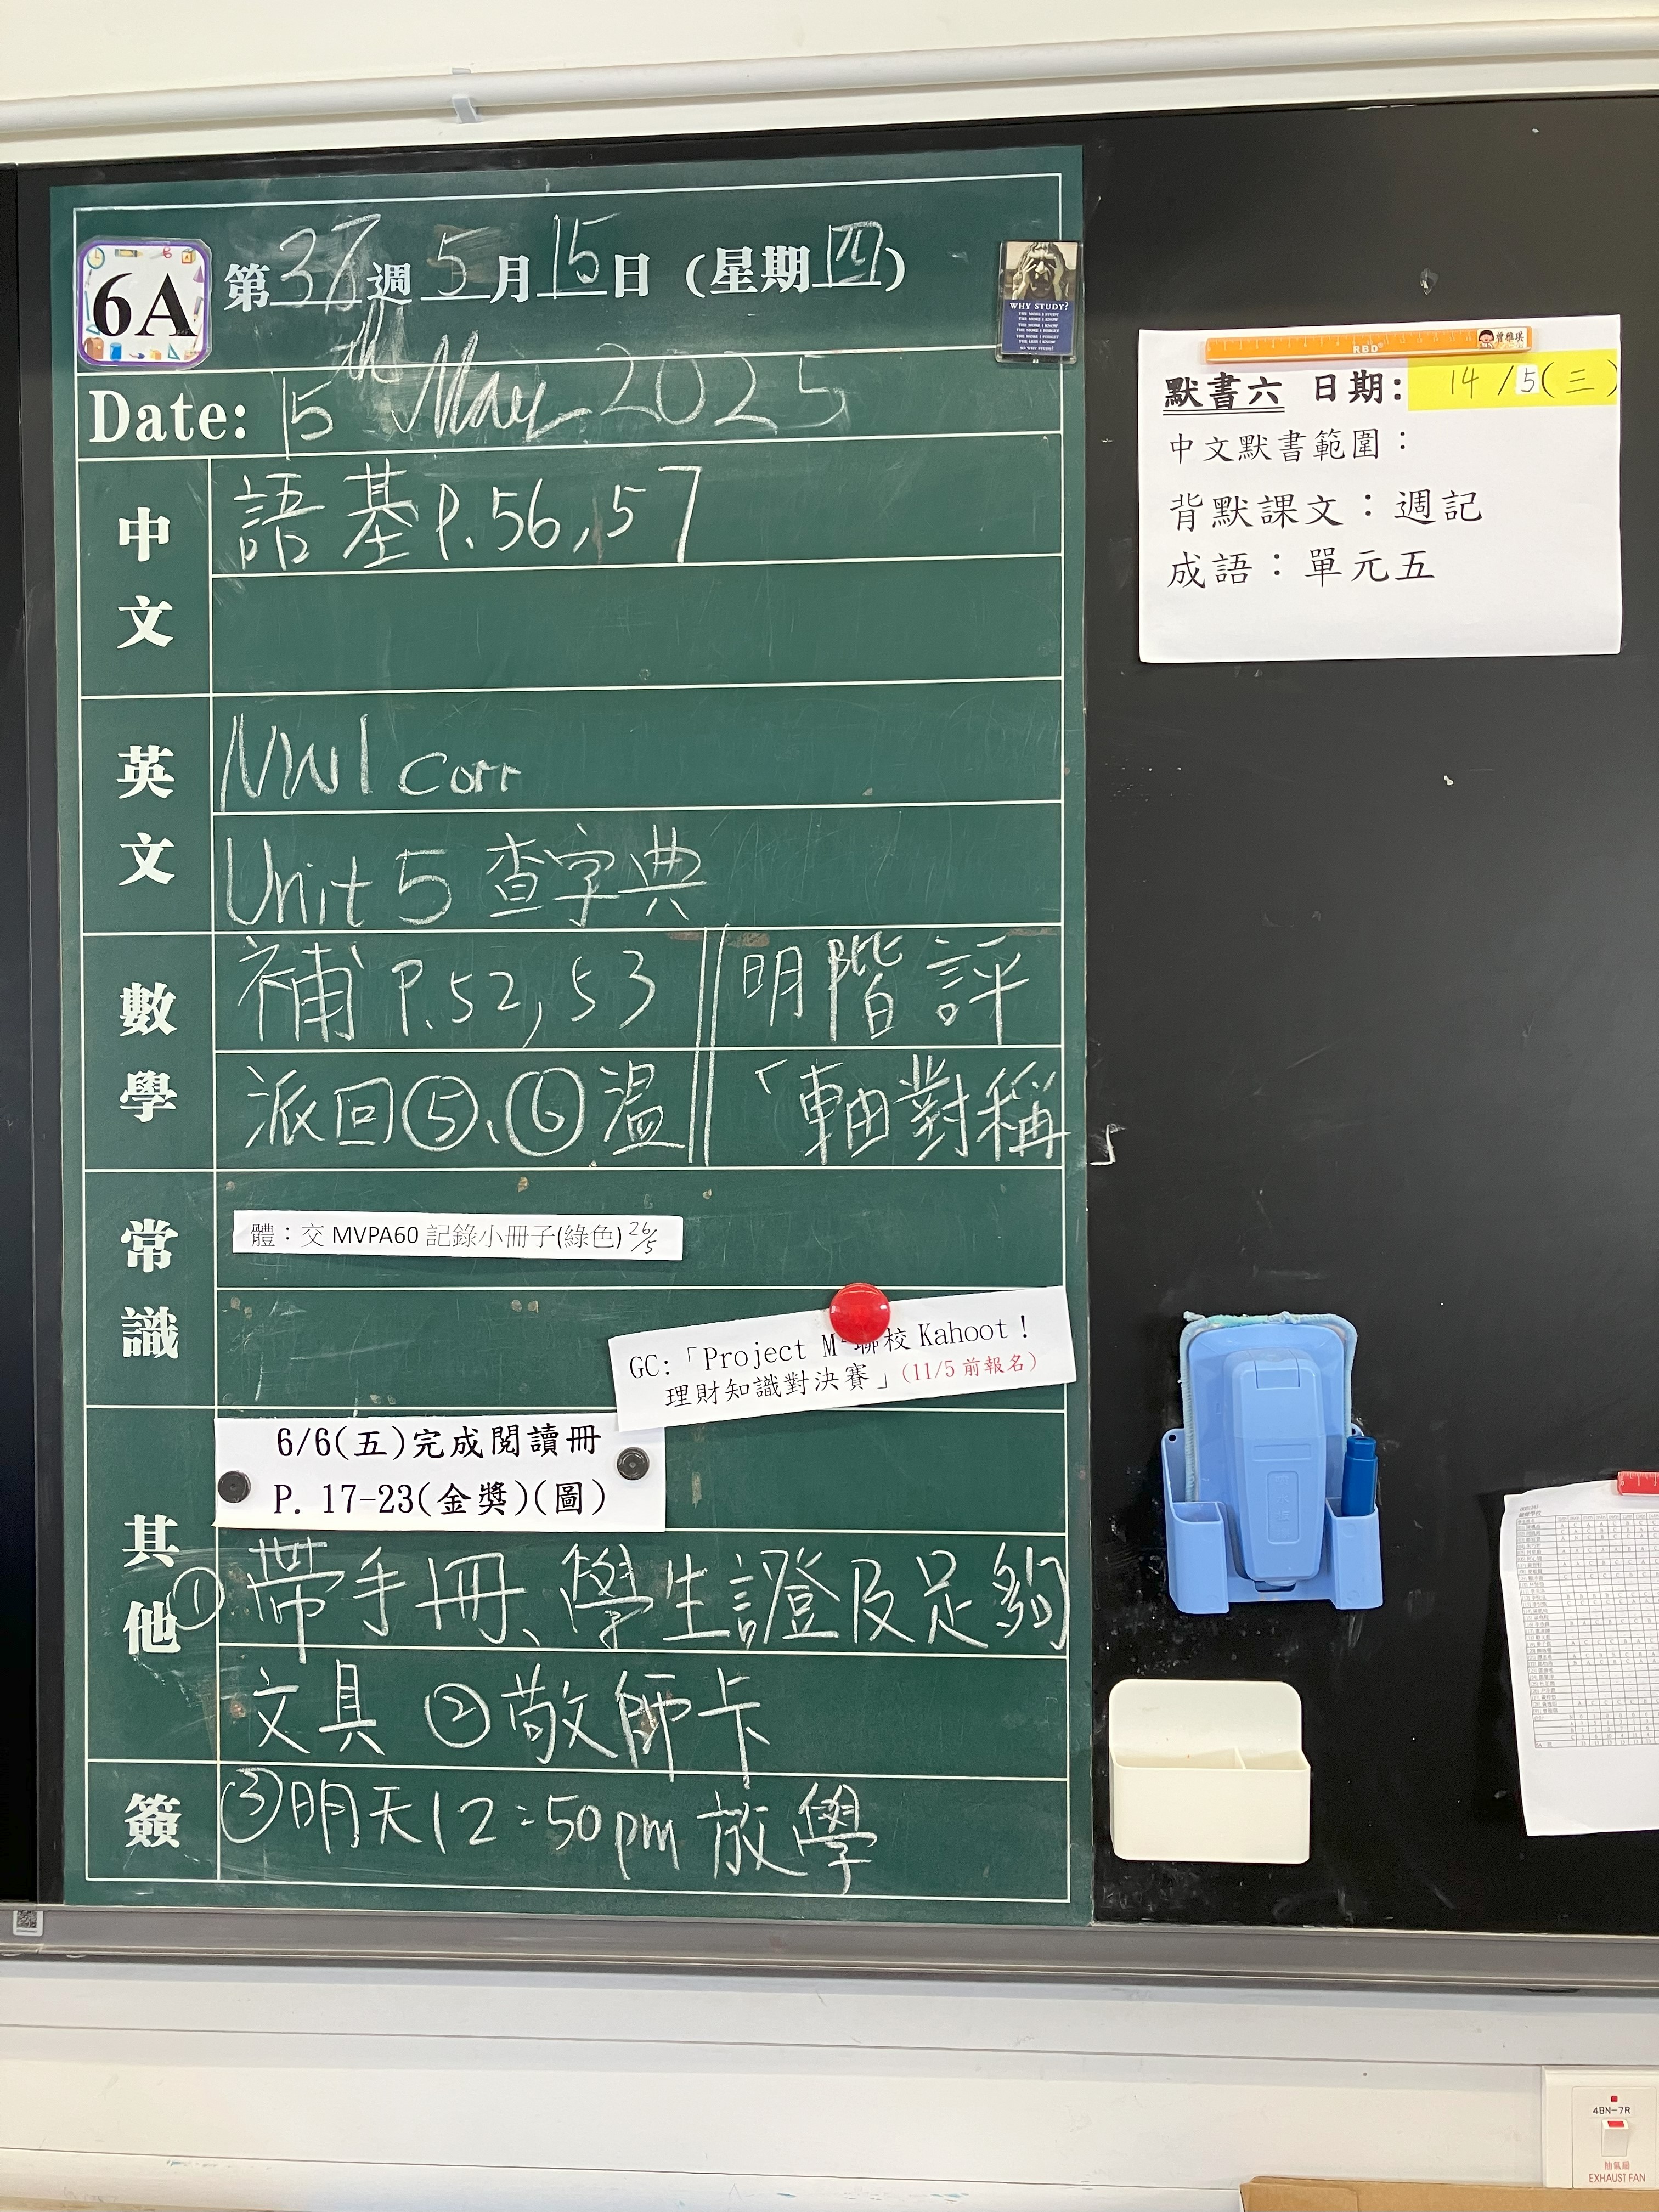 6A
第37週 5月15日 (星期四)
WHY STUDY?
THE MORE I STUDY
THE MORE I KNOW
THE MORE I KNOW
THE MORE I FORGET
THE MORE I FORGET
THE LESS I KNOW
SO WHY STUDY?
Date: 15th May 2025
中文
語基P.56,57
英文
NW1 corr
Unit 5 查字典
數學
補 P.52,53 明階評
派回⑤、⑥溫 「軸對稱」
常識
體：交 MVPA60 記錄小冊子(綠色) 26/5
GC:「Project M-聯校 Kahoot！
理財知識對決賽」(11/5 前報名)
其他
6/6(五)完成閱讀冊
P. 17-23(金獎)(圖)
①帶手冊、學生證及足夠
文具 ②敬師卡
簽
③明天12:50pm 放學
RBD
曾雅琪
默書六 日期: 14/5(三)
中文默書範圍：
背默課文：週記
成語：單元五
4BN-7R
抽氣扇
EXHAUST FAN